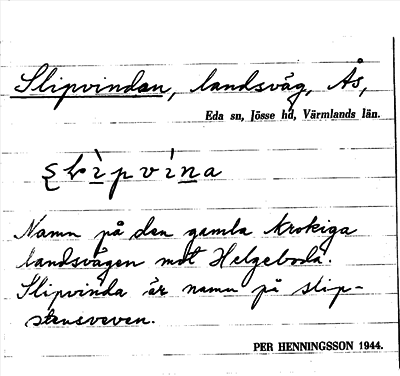 Slipvindan, landsväg, Ås,
Eda sn, Jösse hd, Värmlands län.
Namn på den gamla krokiga
landsvägen mot Helgeboda.
Slipvinda är namn på slip-
stensveven.
PER HENNINGSSON 1944.